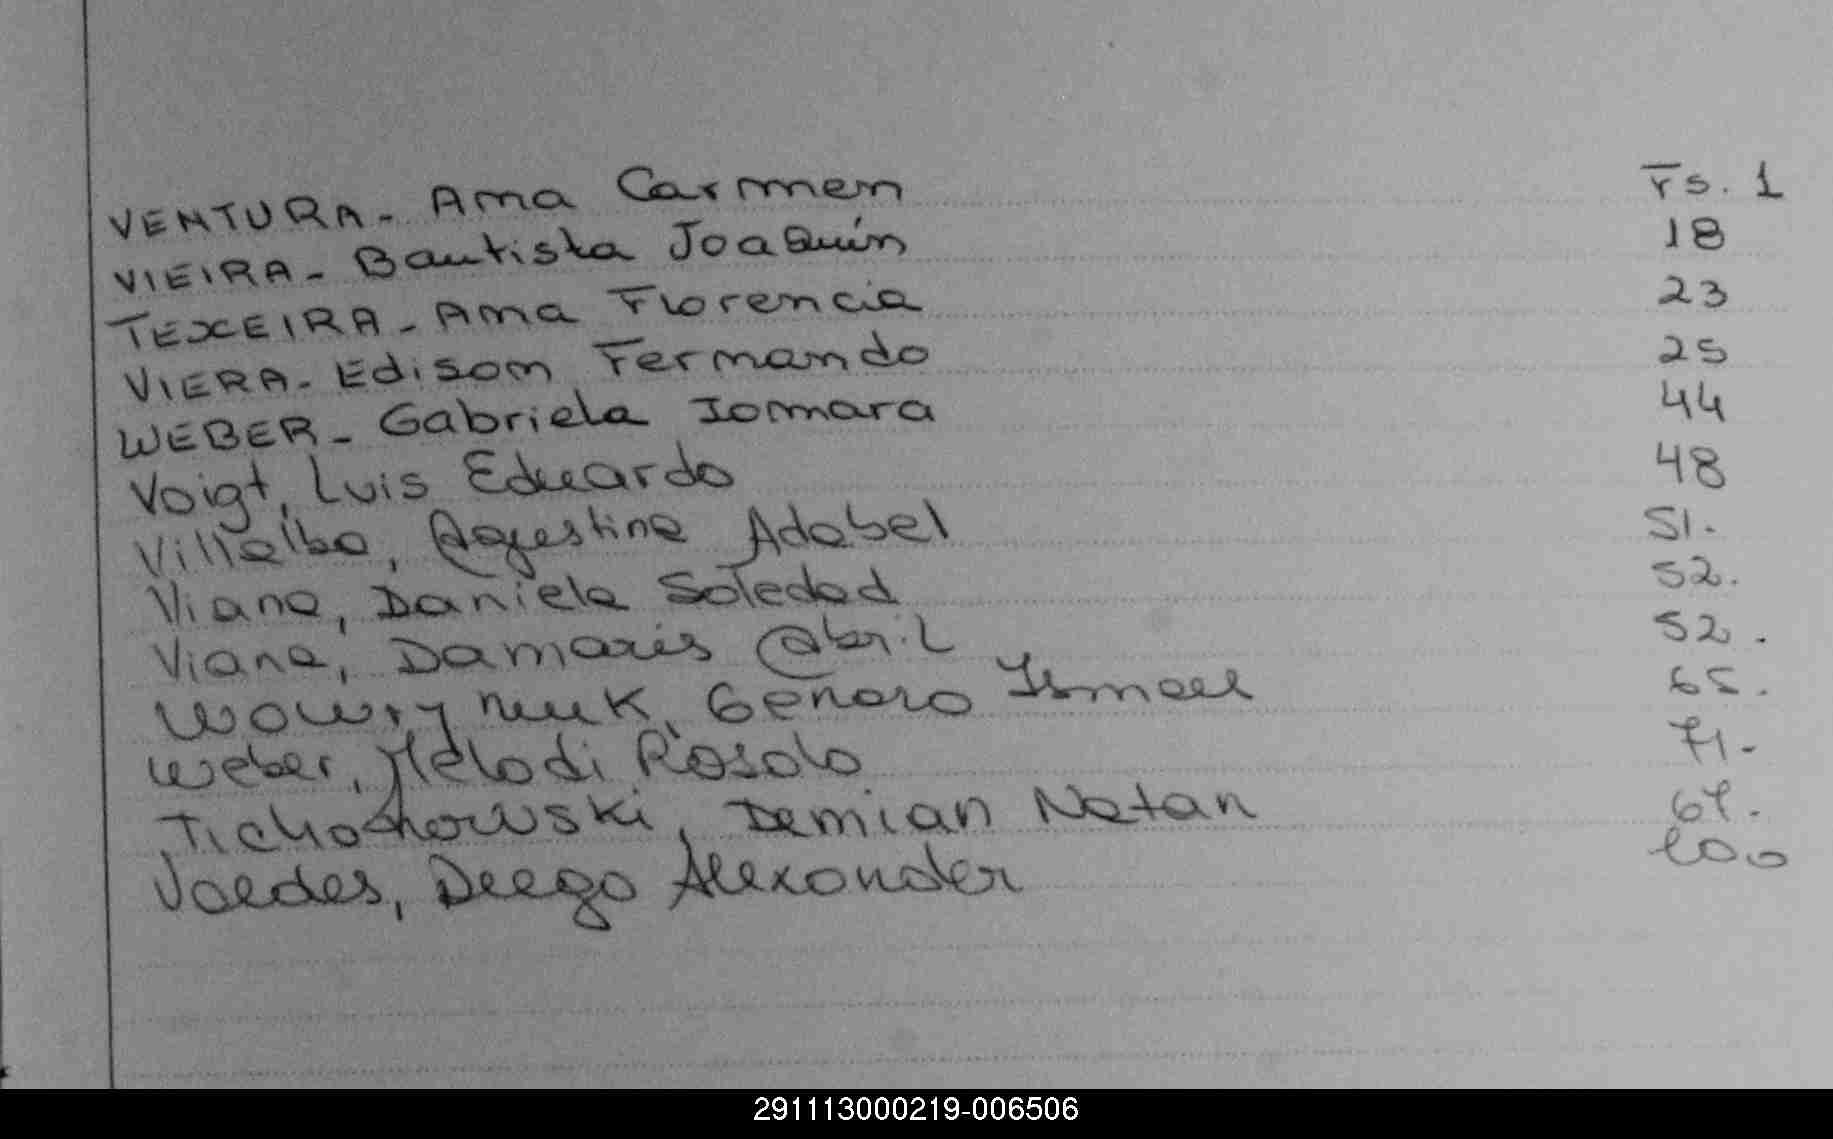 VENTURA - Ana Carmen Fs. 1
VIEIRA - Bautista Joaquín 18
TEXEIRA - Ana Florencia 23
VIERA - Edison Fernando 25
WEBER - Gabriela Iomara 44
Voigt, Luis Eduardo 48
Villalba, Agustina Adabel 51.
Viana, Daniela Soledad 52.
Viana, Damaris Abril 52.
Genaro Ismael 65.
Weber, Melodi 71.
Demian Natan
Diego Alexander 100
291113000219-006506